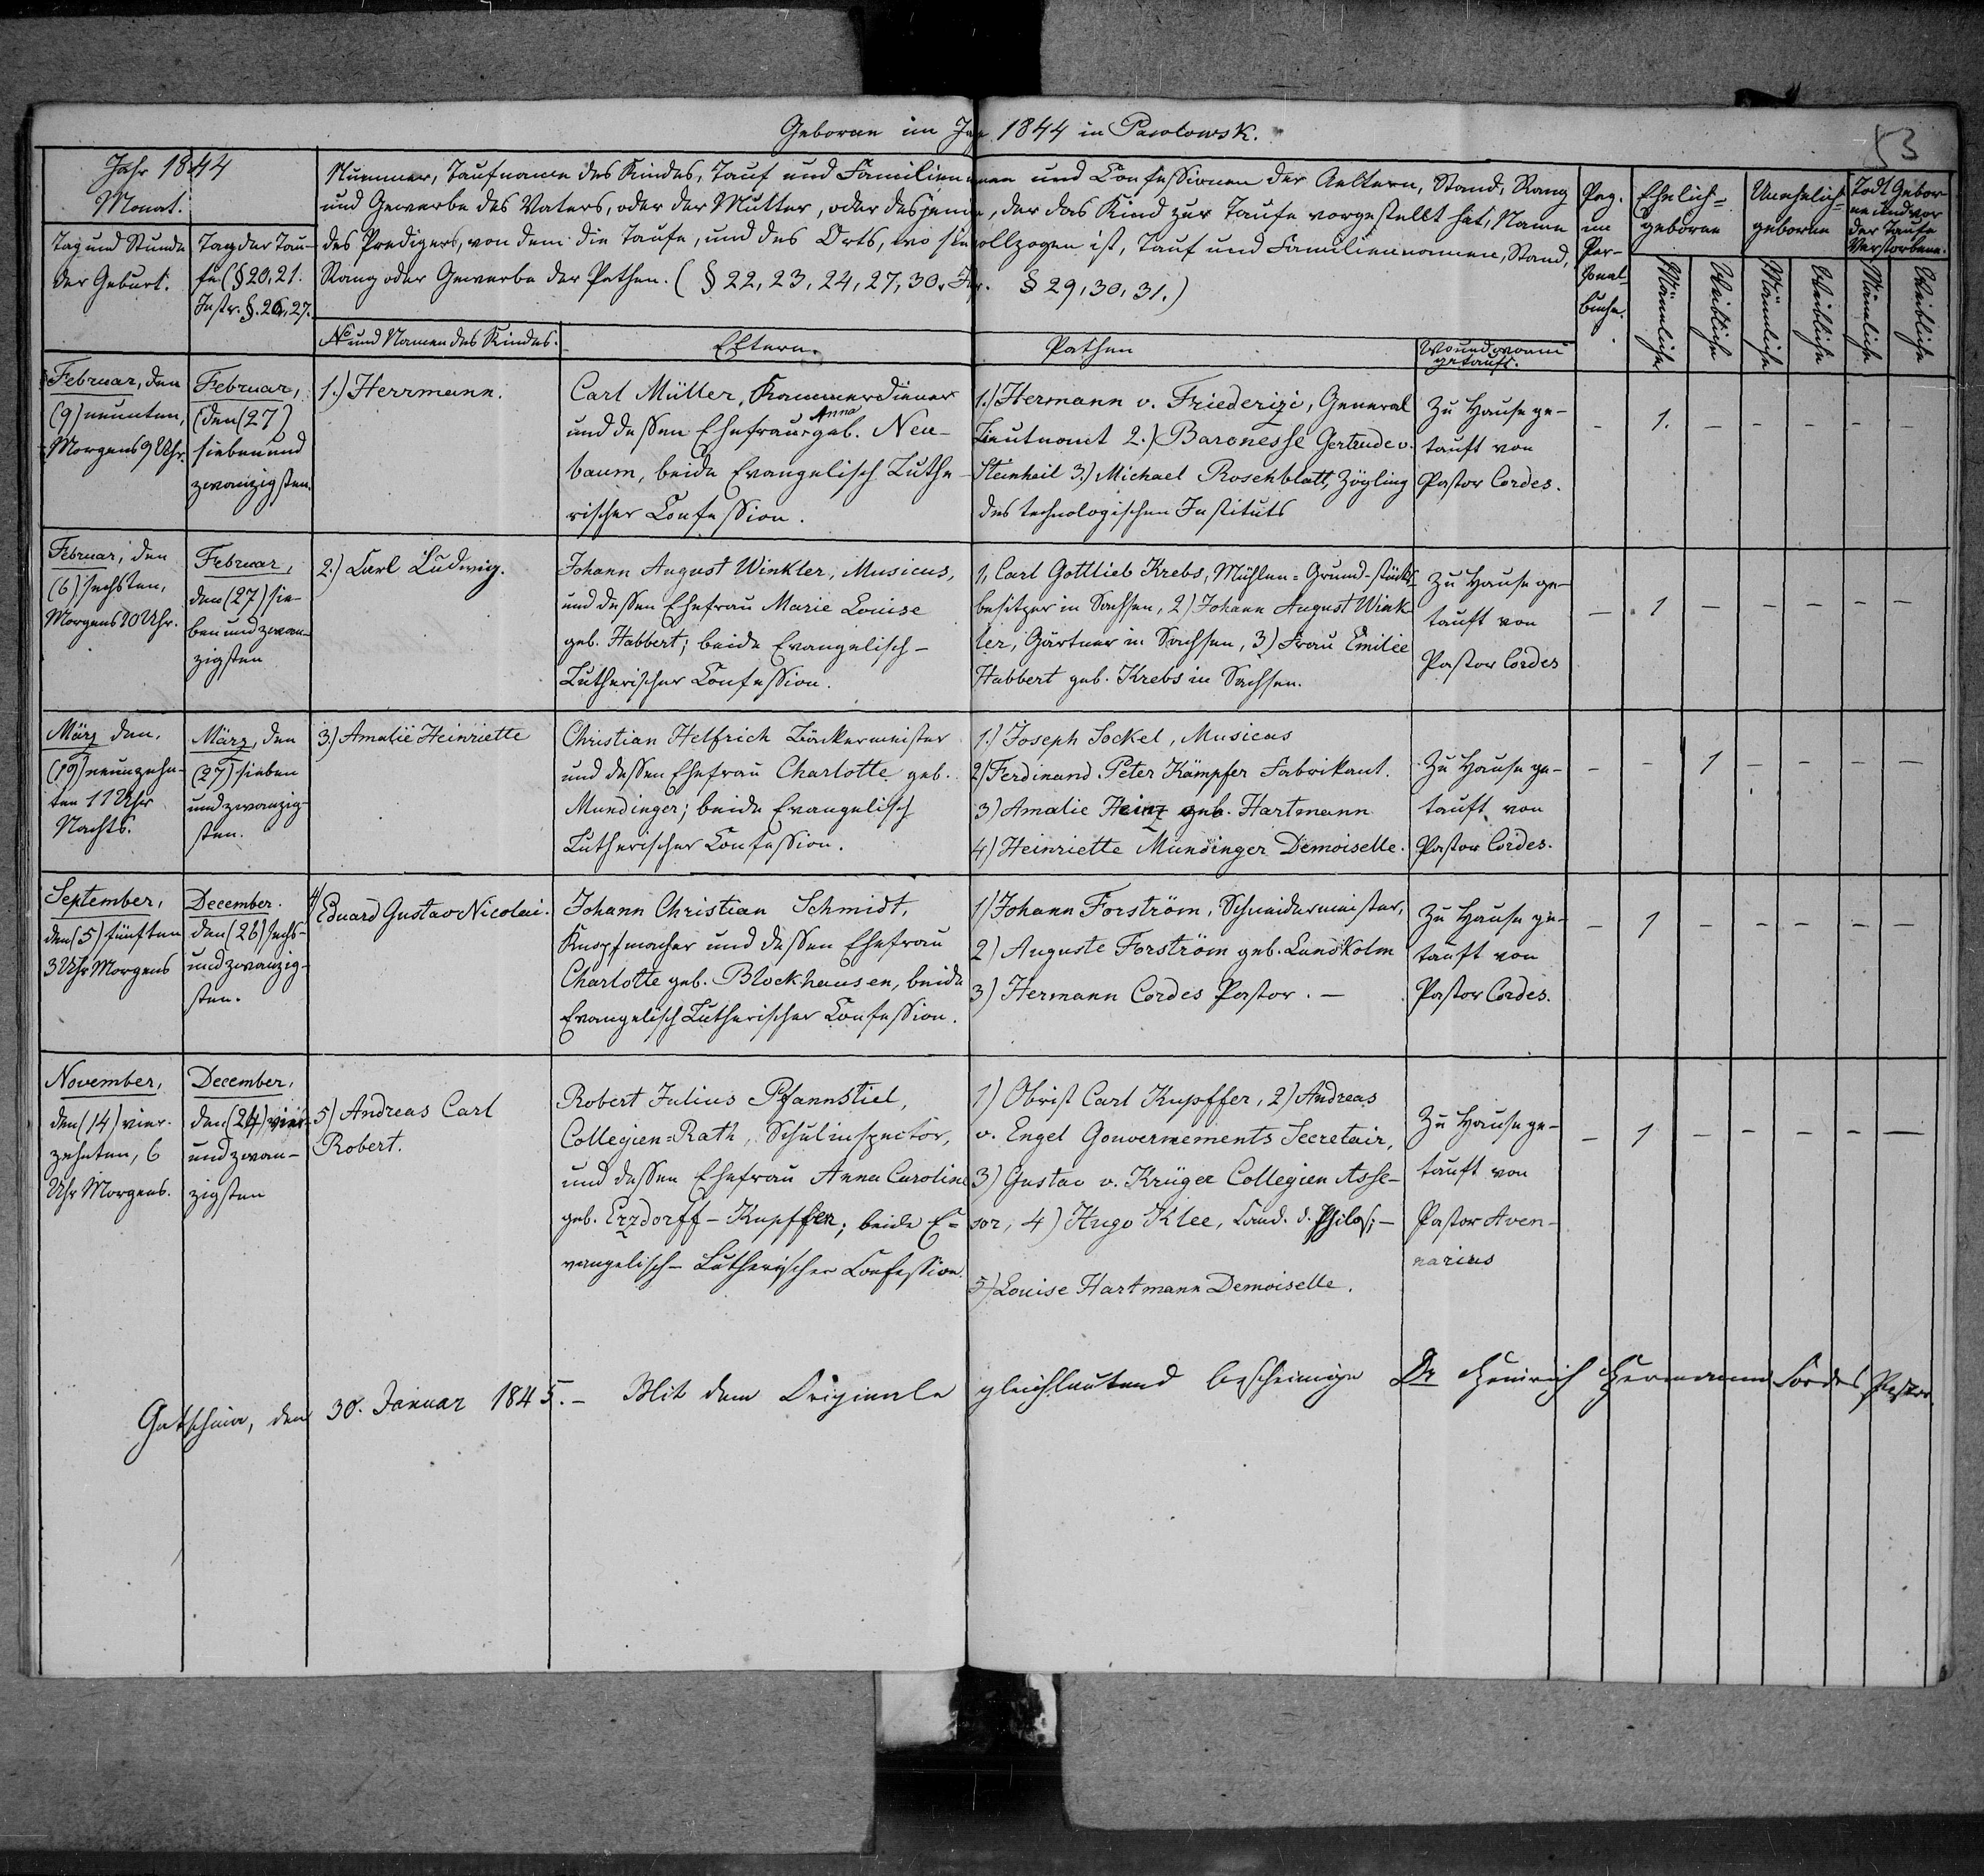 Geborene im Ja 1844 in Pawlowsk.
53
Jahr 1844
Monat.
Tag und Stunde
der Geburt.
Tag der Tau-
fe (§ 20, 21.
Instr. §. 26, 27.
Nummer, Taufname des Kindes, Tauf und Familien nen und Confessionen der Aeltern, Stand, Rang
und Gewerbe des Vaters, oder der Mutter, oder desjeni , der das Kind zur Taufe vorgestellt hat, Name
des Predigers, von dem die Taufe, und des Orts, wo sie vollzogen ist, Tauf und Familiennamen, Stand,
Rang oder Gewerbe der Pathen. (§ 22, 23, 24, 27, 30. § 29, 30, 31.)
No und Namen des Kindes.
Eltern.
Pathen
Wo und von wem
getauft.
Pag.
im
Per-
sonal-
buche.
Ehelich=
geborene
Unehelich=
geborene
Todt Gebor-
ne und vor
der Taufe
Verstorbene.
Männliche
Weibliche
Männliche
Weibliche
Männliche
Weibliche
Februar, den
(9) neunten,
Morgens 9 Uhr.
Februar,
(den (27)
sieben und
zwanzigsten.
1.) Herrmann.
Carl Müller, Kammerdiener
und dessen Ehefrau Anna geb. Neu-
baum, beide Evangelisch Luthe-
rischer Confession.
1.) Hermann v. Friederizi, General
Lieutnant 2.) Baronesse Gertrude v.
Steinheil 3.) Michael Rosenblatt, Zögling
des technologischen Instituts
Zu Hause ge-
tauft von
Pastor Cordes.
- 1. - - - - -
Februar, den
(6) sechsten,
Morgens 10 Uhr.
Februar,
den (27) sie-
ben und zwan-
zigsten
2.) Carl Ludwig.
Johann August Winkler, Musicus,
und dessen Ehefrau Marie Louise
geb. Habbert; beide Evangelisch-
Lutherischer Confession.
1, Carl Gottlieb Krebs, Mühlen=Grund-stücks-
besitzer in Sachsen, 2) Johann August Wink-
ler, Gärtner in Sachsen, 3) Frau Emilie
Habbert geb. Krebs in Sachsen.
Zu Hause ge-
tauft von
Pastor Cordes
- 1 - - - - -
März den,
(19) neunzehn-
ten 11 Uhr
Nachts.
März, den
(27) sieben
und zwanzig-
sten.
3.) Amalie Heinriette
Christian Helfrich Bäckermeister
und dessen Ehefrau Charlotte geb.
Mundinger; beide Evangelisch
Lutherischer Confession.
1.) Joseph Sockel, Musicus
2) Ferdinand Peter Kämpfer Fabrikant.
3) Amalie Heinz geb. Hartmann
4) Heinriette Mundinger Demoiselle.
Zu Hause ge-
tauft von
Pastor Cordes.
- - 1 - - - -
September,
den (5) fünften
3 Uhr Morgens
December.
den (26) sechs-
und zwanzig-
sten.
4) Eduard Gustav Nicolai.
Johann Christian Schmidt,
Knopfmacher und dessen Ehefrau
Charlotte geb. Blockhausen, beide
Evangelisch Lutherischer Confession.
1) Johann Forström, Schneidermeister,
2) Auguste Forström geb. Lundholm
3) Hermann Cordes Pastor. -
Zu Hause ge-
tauft von
Pastor Cordes.
- 1 - - - - -
November,
den (14) vier-
zehnten, 6
Uhr Morgens.
December,
den (24) vier-
und zwan-
zigsten
5) Andreas Carl
Robert.
Robert Julius Pfannstiel,
Collegien=Rath, Schulinspector,
und dessen Ehefrau Anna Caroline
geb. Erzdorff-Kupffer; beide E-
vangelisch-Lutherischer Confession.
1) Obrist Carl Kupffer, 2) Andreas
v. Engel Gouvernements Secretair,
3) Gustav v. Krüger Collegien Asse-
sor, 4) Hugo Klee, Cand. d. Philos; -
5) Louise Hartmann Demoiselle.
Zu Hause ge-
tauft von
Pastor Aven-
narius
- 1 - - - - -
Gatschina, den 30. Januar 1845. - Mit dem Originale gleichlautend bescheinige Dr Heinrich Hermann Cordes Pastor.